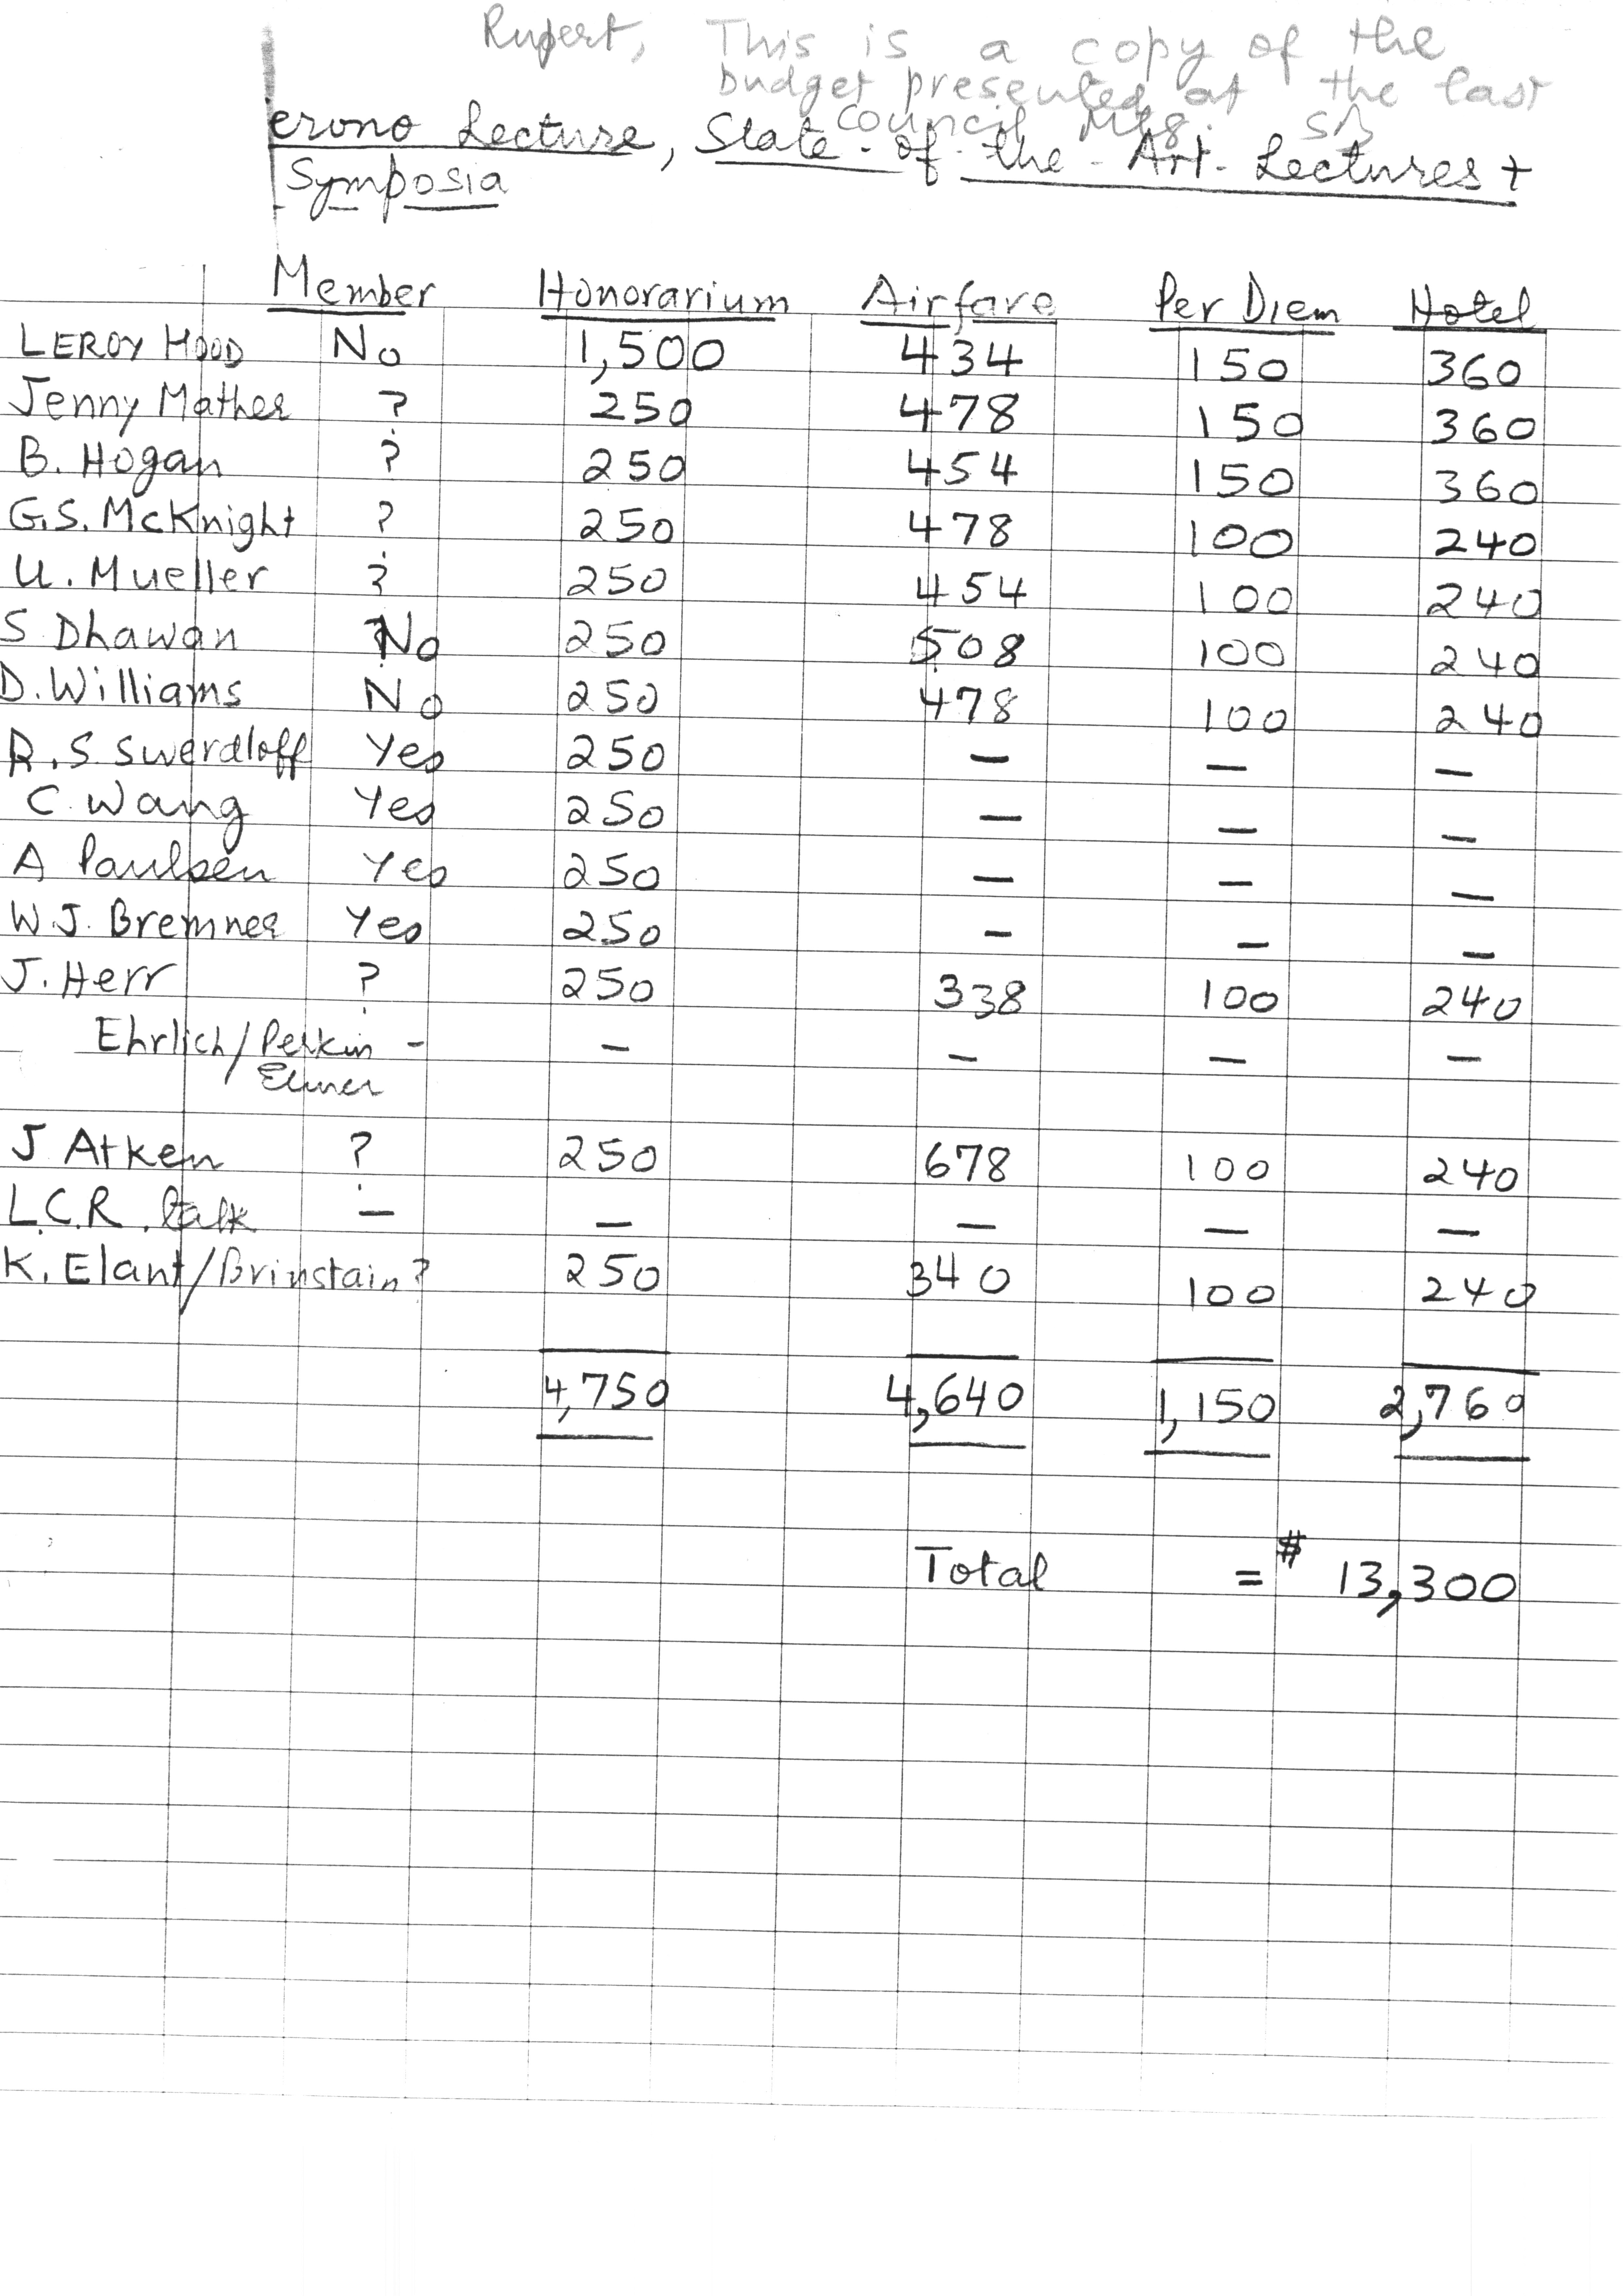 Rupert, This is a copy of the
budget presented at the last
council Mtg. SB
erono Lecture, State-of-the-Art-Lectures +
Symposia
Member Honorarium Airfare Per Diem Hotel
LEROY HOOD No 1,500 434 150 360
Jenny Mather ? 250 478 150 360
B. Hogan ? 250 454 150 360
G.S. McKnight ? 250 478 100 240
U. Mueller ? 250 454 100 240
S Dhawan No 250 508 100 240
D. Williams No 250 478 100 240
R.S Swerdloff Yes 250 — — —
C. Wang Yes 250 — — —
A Paulsen Yes 250 — — —
W.J. Bremner Yes 250 — — —
J. Herr ? 250 338 100 240
Ehrlich/Perkin - — — — —
Elmer
J Atken ? 250 678 100 240
L.C.R. talk — — — — —
K. Elant/Brinstain? 250 340 100 240
4,750 4,640 1,150 2,760
Total = $ 13,300